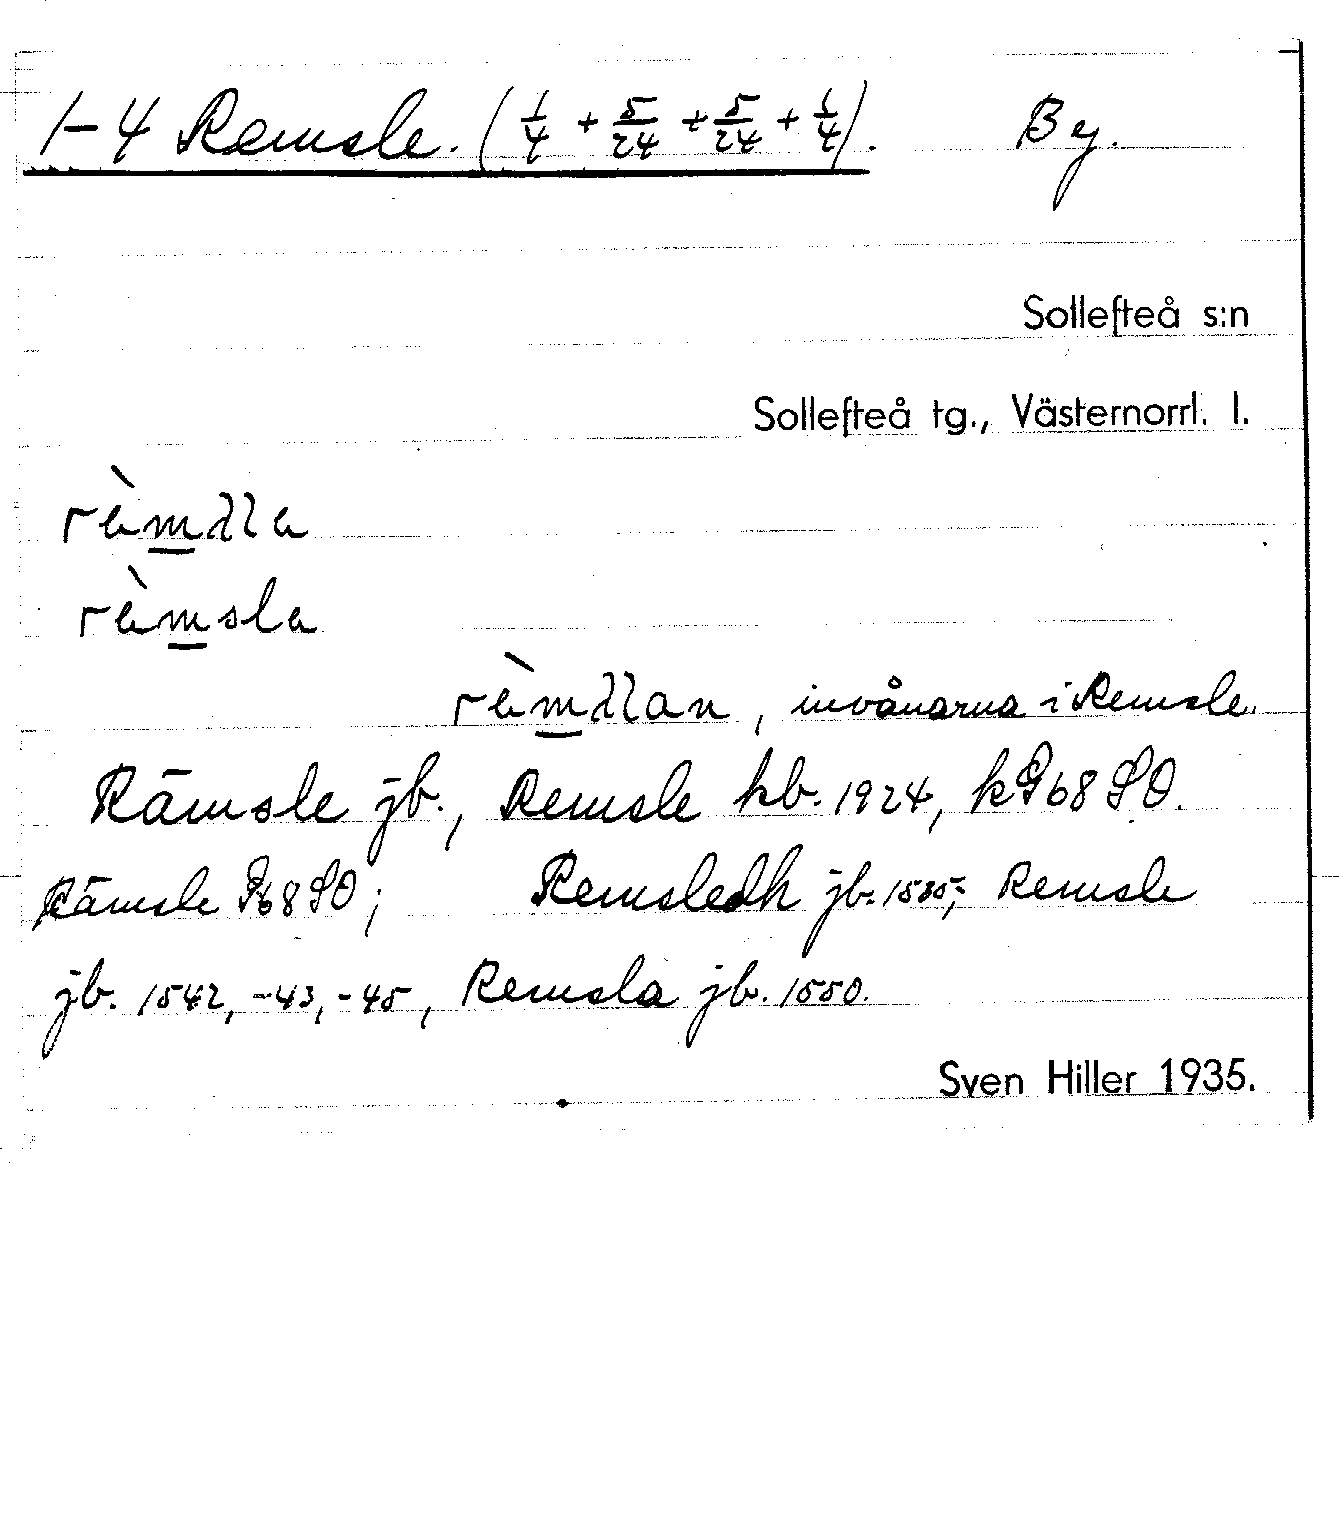 1-4 Remsle. (1/4 + 5/24 + 5/24 + 1/4). By.
Sollefteå s:n
Sollefteå tg., Västernorrl. l.
rèmsla
, invånarna i Remsle.
Rämsle jb., Remsle kb. 1924, k 68 SO.
Rämsle 68 SO; Remsledh jb. 1535; Remsle
jb. 1542, -43, -45, Remsla jb. 1550.
Sven Hiller 1935.